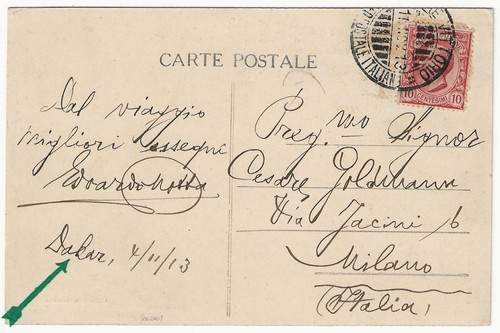 CARTE POSTALE
10 CENTESIMI 10
Dal viaggio
migliori ossequi
Edoardo
Dakar, 4/11/13
Preg.mo Signor
Cesare Goldmann
Via Jacini 6
Milano
(Italia)